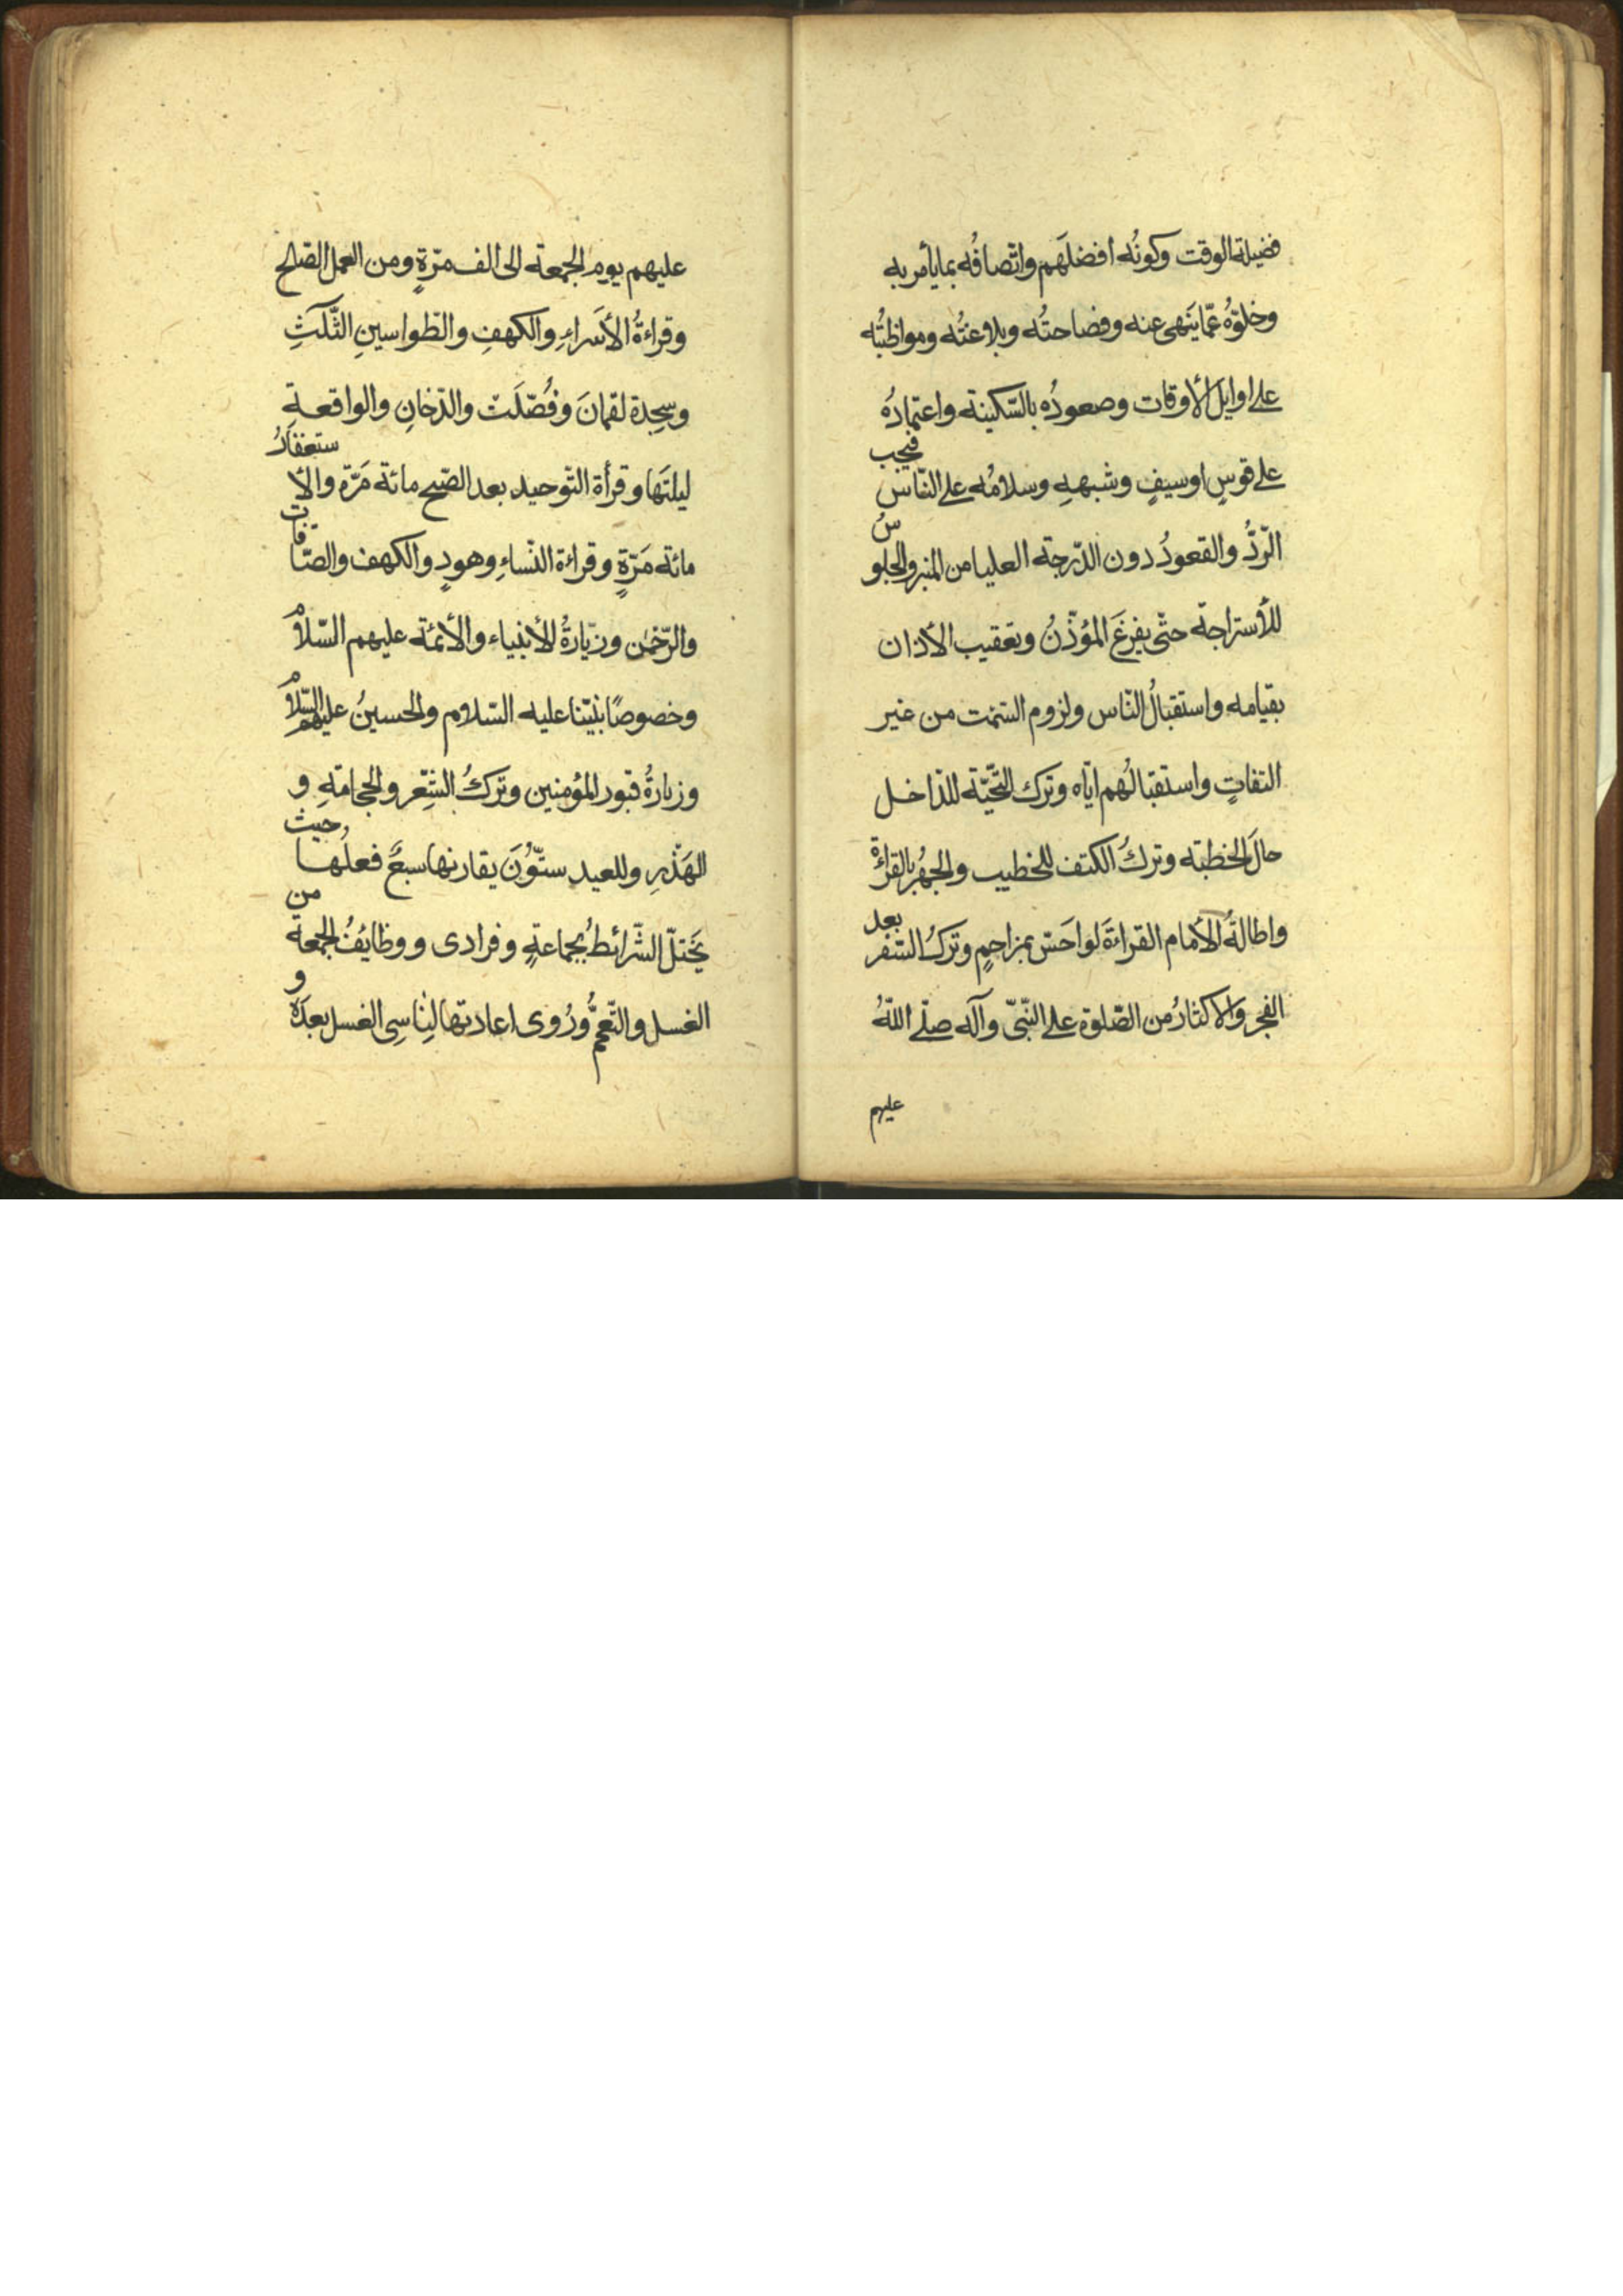 فضيلة الوقت وكونُه افضلَهم واتّصافُه بما يأمر به
وخلوّهُ عمّا ينهى عنه وفصاحتُه وبلاغتُه ومواظبتُه
على اوايل الأوقات وصعودُه بالسّكينة واعتمادُه
على قوسٍ او سيفٍ وشبههِ وسلامُه على النّاس فيجب
الرّدُّ والقعودُ دون الدّرجة العليا من المنبر والجلوسُ
للأستراحة حتّى يفرغَ المؤذّنُ وتعقيب الأذان
بقيامه واستقبالُ النّاس ولزوم السّمت من غير
التفاتٍ واستقبالُهم ايّاه وترك التّحيّة للدّاخل
حالَ الخطبة وتركُ الكتف للخطيب والجهرُ بالقراءة
واطالةُ الأمام القراءةَ لو احَسّ بمزاحمٍ وتركُ السّفر بعد
الفجر والاكثارُ من الصّلوة على النّبيّ وآله صلّى اللّهُ
عليهم
عليهم يوم الجمعة الى الف مرّةٍ ومن العمل الصّلح
وقراءةُ الأسَراءِ والكهفِ والطّواسينِ الثّلثِ
وسجدة لقمانَ وفُصّلَت والدّخانِ والواقعةِ
ليلتَها وقرأة التّوحيد بعد الصّبح مائة مَرّة والأستغفارُ
مائة مَرّةٍ وقراءة النّساءِ وهودٍ والكهف والصّافّات
والرّحمٰن وزيارةُ الأنبياء والأئمّة عليهم السّلامُ
وخصوصًا نبيّنا عليه السّلام والحسينُ عليهم السّلامُ
وزيارةُ قبور المؤمنين وتركُ الشّعر والحجامةِ و
الهَذْرِ وللعيد ستّوُنَ يقارنها سبعٌ فعلُها حيث
يَختلّ الشّرائطُ بجماعةٍ وفرادى ووظايفُ الجمعة من
الغسل والتّعمّمُ ورُوى اعادتها لِناسِى الغسل بعدَهُ و